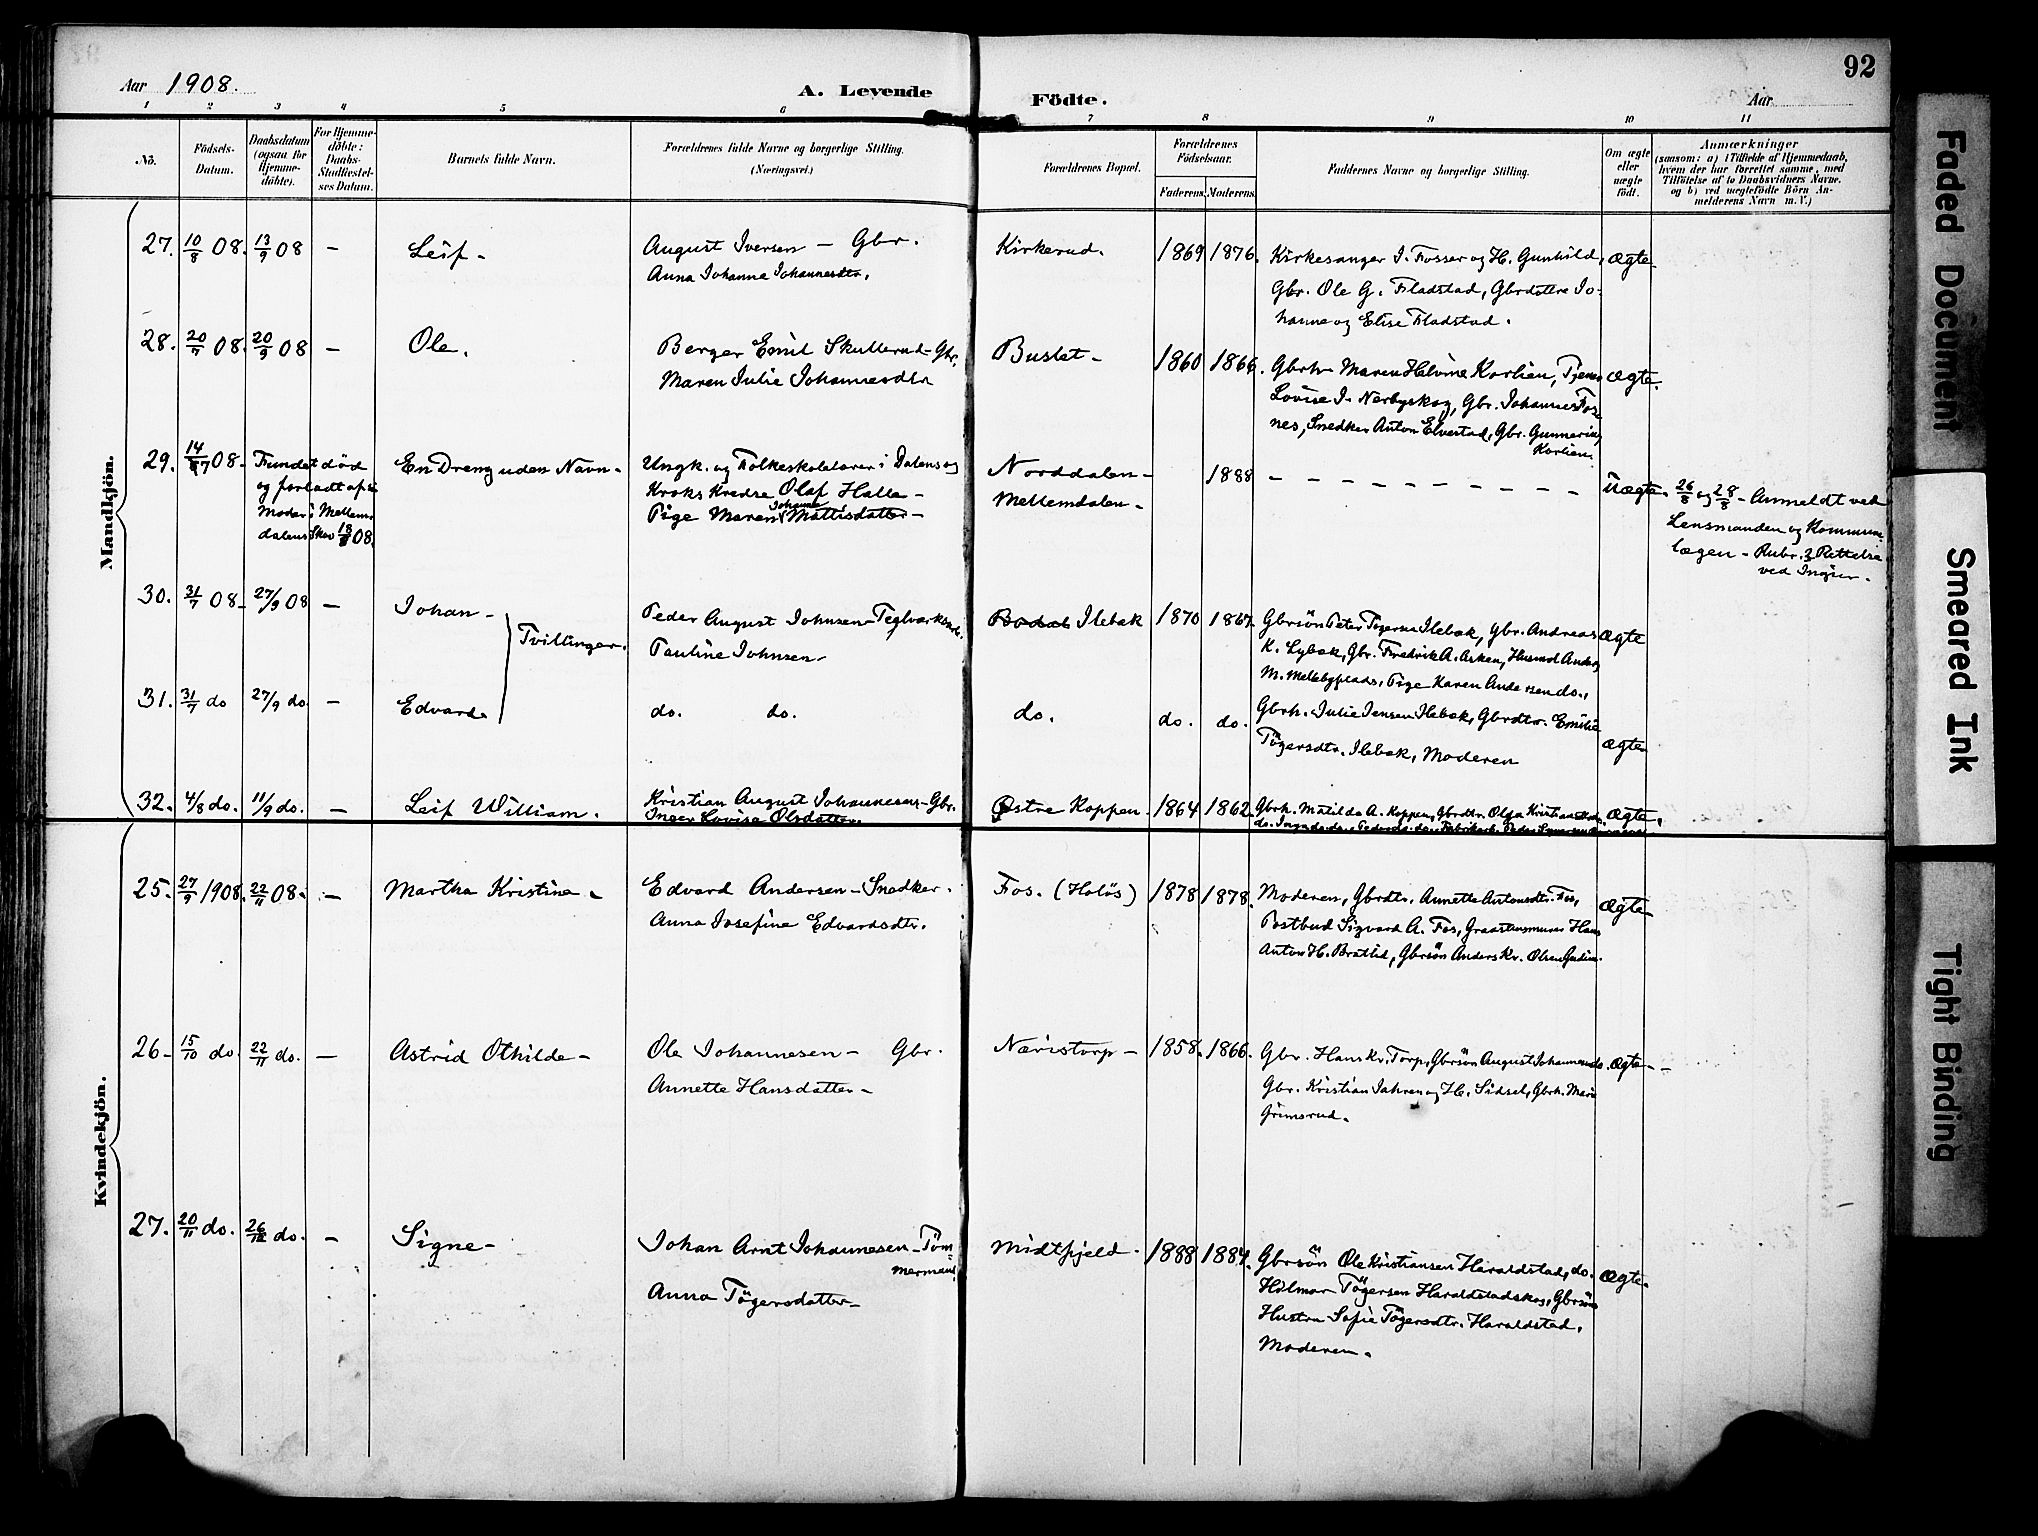 92
Aar 1908.
A. Levende Födte.
Aar
1 2 3 4 5 6 7 8 9 10 11
No.
Födsels-
Datum.
Daabsdatum
(ogsaa for
Hjemme-
döbte).
For Hjemme-
döbte:
Daabs-
Stadfæstel-
ses Datum.
Barnets fulde Navn.
Forældrenes fulde Navne og borgerlige Stilling.
(Næringsvei.)
Forældrenes Bopæl.
Forældrenes
Födselsaar.
Faderens. Moderens.
Faddernes Navne og borgerlige Stilling.
Om ægte
eller
uægte
födt.
Anmærkninger
(saasom: a) i Tilfælde af Hjemmedaab,
hvem der har forrettet samme, med
Tilföielse af to Daabsvidners Navne,
og b) ved uægtefödte Börn An-
melderens Navn m. V.)
Mandkjön.
27. 10/8 08. 13/9 08 - Leif - August Iversen - Gbr. Kirkerud. 1869 1876. Kirkesanger I. Fosser og H. Gunhild, ægte.
Anna Johanne Johannesdtr. Gbr. Ole G. Fladstad, Gbrdöttre Jo-
hanne og Elise Fladstad.
28. 20/7 08. 20/9 08 - Ole. Berger Emil Skullerud - Gbr. Buslet - 1860 1866. Gbrh. Maren Helvine Korlien, ægte.
Maren Julie Johannesdtr Lovise J. Nerbyskog, Gbr. Johannes Fos-
nes, Snedker Anton Elvestad, Gbr. Gunnerius
Korlien.
29. 14/7 08. Fundet död En Dreng uden Navn. Ungk. og Folkeskolelærer i Dalens og Norddalen - 1888 - Uægte. 26/8 og 28/8 - Anmeldt ved
og forladt af Kroks Kredse Olaf Halle - Mellemdalen. Lensmanden og Kommune-
Moder i Mellem- Pige Maren Johanne Mattisdatter - lægen - Rubr. 3 Rettelse
dalens Skov 18/8 08. ved
30. 31/7 08. 27/9 08 - Johan - Peder August Johnsen - Ilebæk 1870 1867. Gbrsön Peter Tögersen Ilebæk, Gbr. Andreas ægte
Tvillinger. Pauline Johnsen - K. Lybæk, Gbr. Fredrik A. Asken, Husmd
M. Mellebyplads, Pige Karen Andersen do.,
31. 31/7 do 27/9 do. - Edvard. do. do. do. do. do. Gbrh. Julie Jensen Ilebæk, Gbrdtr. Emilie ægte
Tögersdtr. Ilebæk, Moderen
32. 4/8 do. 11/9 do. - Leif William. Kristian August Johannesen - Gbr. Østre Koppen 1864 1862. Gbrh. Matilde A. Koppen, Gbrdtr. Olga ægte.
Inger Lovise Olsdatter.
Kvindekjön.
25. 27/9 1908. 22/11 08. - Martha Kristine - Edvard Andersen - Snedker. Fos. (Holös) 1878 1878. Moderen, Gbrdtr. Annette Antonsdtr. Fos, ægte
Anna Josefine Edvardsdtr. Postbud Sigvard A. Fos, Hans
Anton H. Bratlid, Gbrsön Anders Kr. Olsen
26. 15/10 do. 22/11 do. - Astrid Othilde - Ole Johannesen - Gbr. Næristorp - 1858. 1866. Gbr. Hans Kr. Torp, Gbrsön August Johannesen do. ægte -
Annette Hansdatter - Gbr. Kristian Jahren og H. Sidsel, Gbrh. Mari
Grimsrud.
27. 20/11 do. 26/12 do. - Signe - Johan Arnt Johannesen - Töm- Midtfjeld. 1888 1884. Gbrsön Ole Kristiansen Haraldstad, do. ægte.
mermand
Anna Tögersdatter - Hilmar Tögersen Haraldstadskog, Gbrsöns
Hustru Sofie Tögersdtr. Haraldstad,
Moderen.
Faded Document
Smeared Ink
Tight Binding